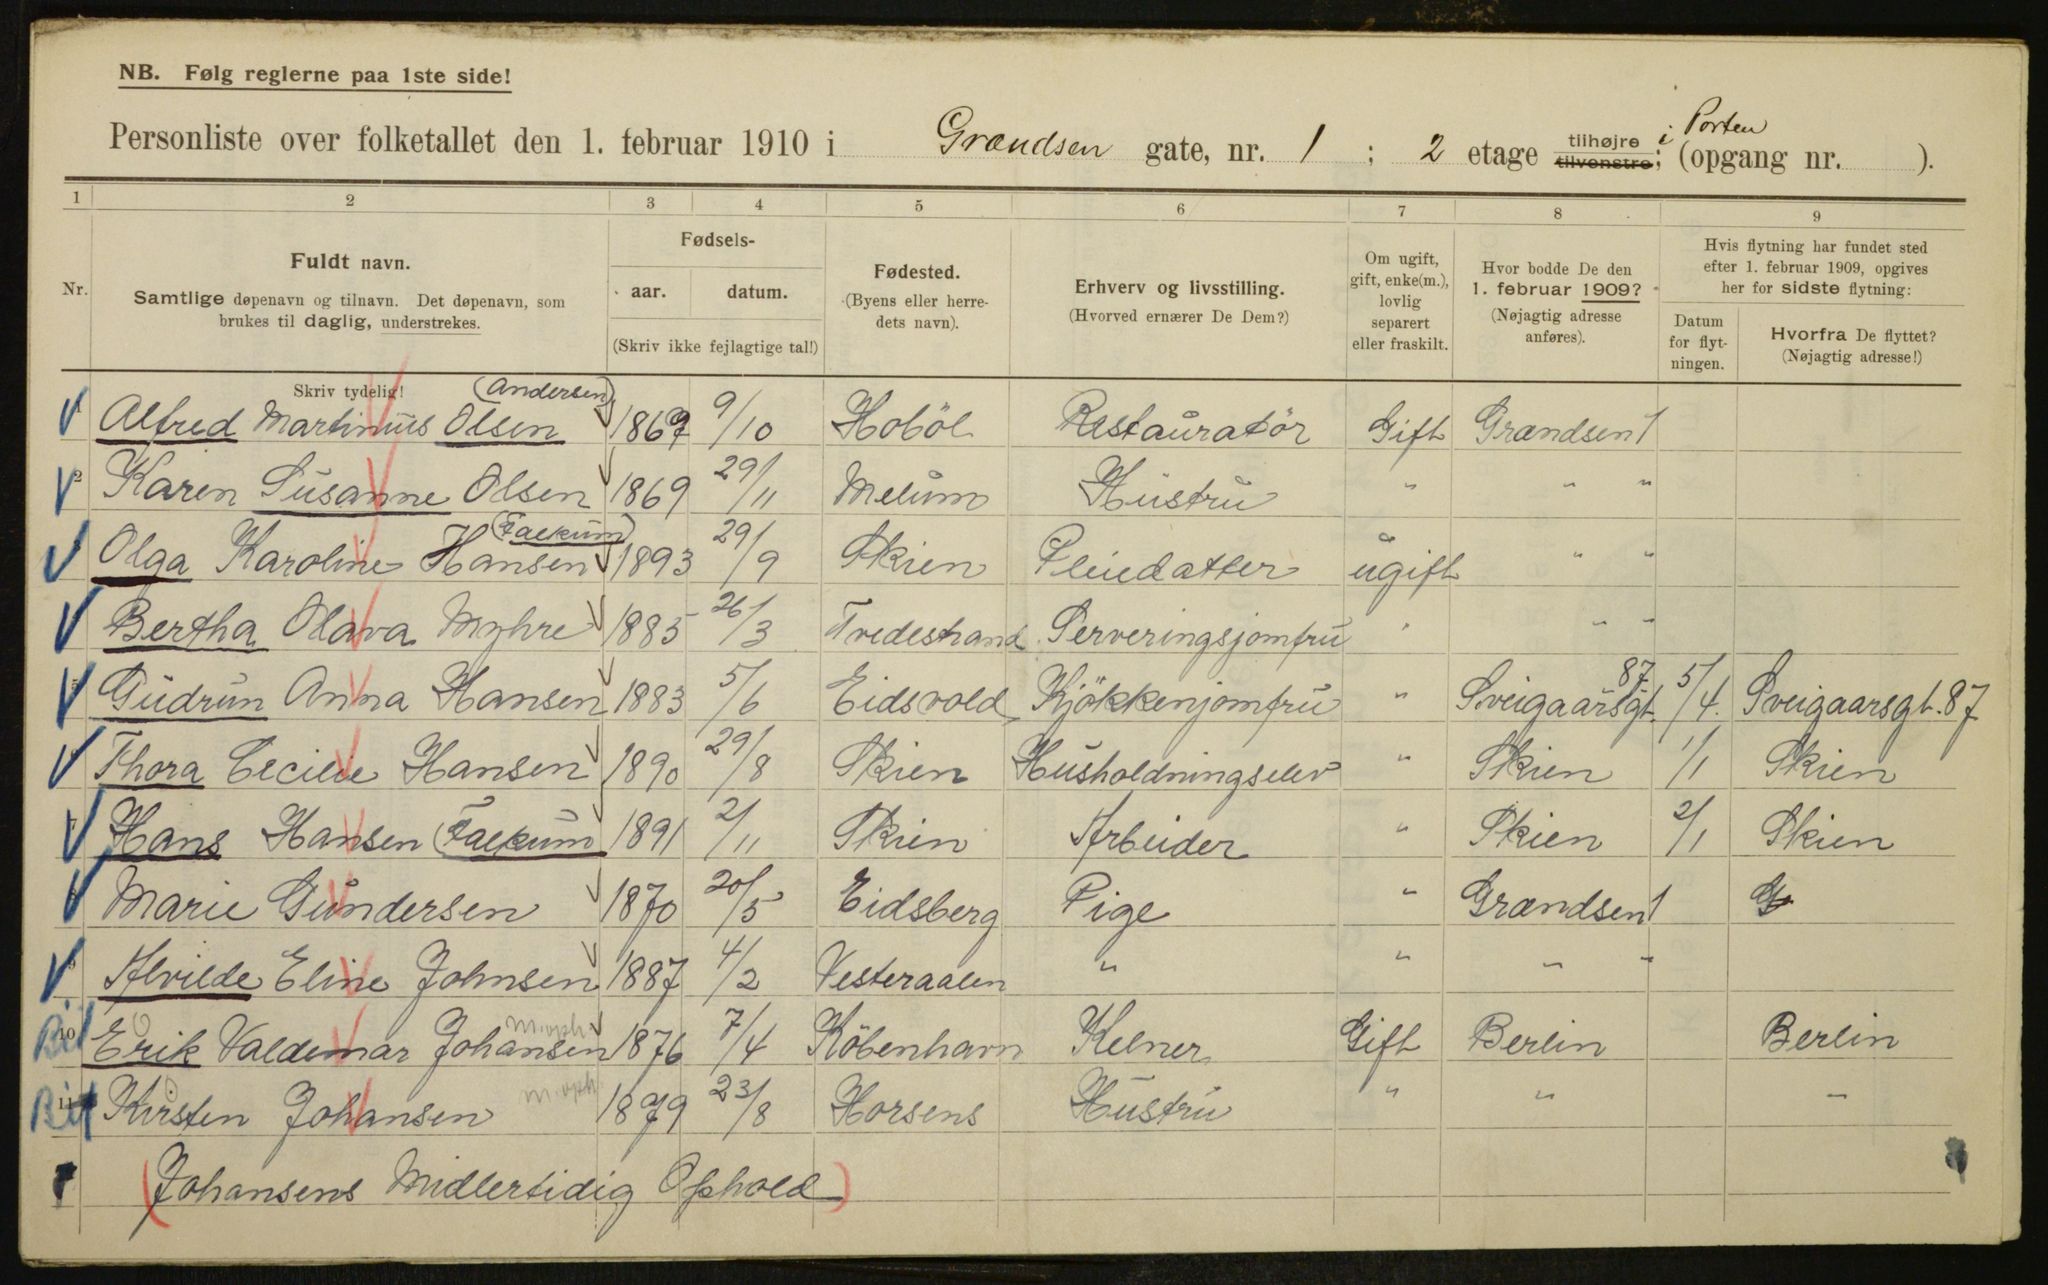 NB. Følg reglerne paa 1ste side!
Personliste over folketallet den 1. februar 1910 i Grændsen gate, nr. 1 ; 2 etage tilhøjre tilvenstre; i Porten (opgang nr. ).
1 2 3 4 5 6 7 8 9
Nr.
Fuldt navn.
Samtlige døpenavn og tilnavn. Det døpenavn, som
brukes til daglig, understrekes.
Skriv tydelig!
Fødsels-
aar. datum.
(Skriv ikke fejlagtige tal!)
Fødested.
(Byens eller herre-
dets navn).
Erhverv og livsstilling.
(Hvorved ernærer De Dem?)
Om ugift,
gift, enke(m.),
lovlig
separert
eller fraskilt.
Hvor bodde De den
1. februar 1909?
(Nøjagtig adresse
anføres).
Hvis flytning har fundet sted
efter 1. februar 1909, opgives
her for sidste flytning:
Datum
for flyt-
ningen.
Hvorfra De flyttet?
(Nøjagtig adresse!)
1 Alfred Martinius Olsen (Andersen) 1867 9/10 Hoböl Restauratör Gift Grændsen 1
2 Karen Susanne Olsen 1869 29/11 Melum Hustru " " "
3 Olga Karoline Hansen (Falkum) 1893 29/9 Skien Pleiedatter ugift " "
Bertha Olava Myhre 1885 26/3 Tvedestrand Serveringsjomfru " " "
5 Gudrun Anna Hansen 1883 5/6 Eidsvold Kjökkenjomfru " Sveigaarsgt. 87 5/4. Sveigaarsgt. 87
Thora Cecilie Hansen 1890 29/8 Skien Husholdningselev " Skien 1/1 Skien
7 Hans Hansen (Falkum) 1891 2/11 Skien Arbeider " Skien 2/1 Skien
Marie Gundersen 1870 20/5 Eidsberg Pige " Grændsen 1 G
9 Alvilde Eline Johnsen 1887 4/2 Vesteraalen " " " "
10 Erik Valdemar Johansen m. oph. 1876 7/4 Köbenhavn Kelner Gift Berlin Berlin
11 Kirsten Johansen m. oph. 1879 23/8 Horsens Hustru " " "
(Johansens Midlertidig Ophold)